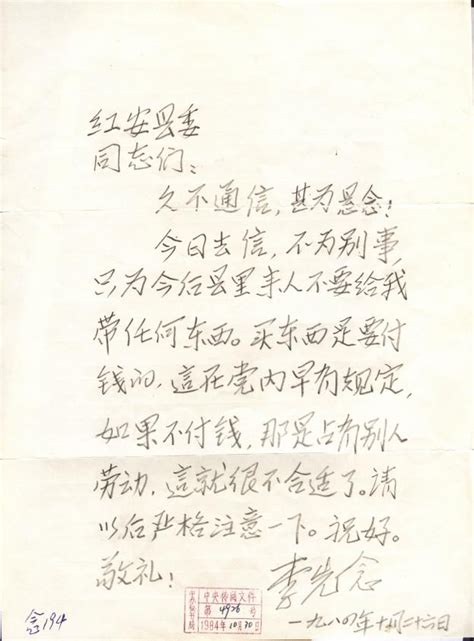 红安县委
同志们：
久不通信，甚为悬念！
今日去信，不为别事，
只为今后县里来人不要给我
带任何东西。买东西是要付
钱的，這在党内早有规定，
如果不付钱，那是占有别人
劳动，這就很不合适了。请
以后严格注意一下。祝好。
敬礼！
李先念
一九八四年十月二十六日
中央传阅文件
第 4926 号
1984年10月30日
念194